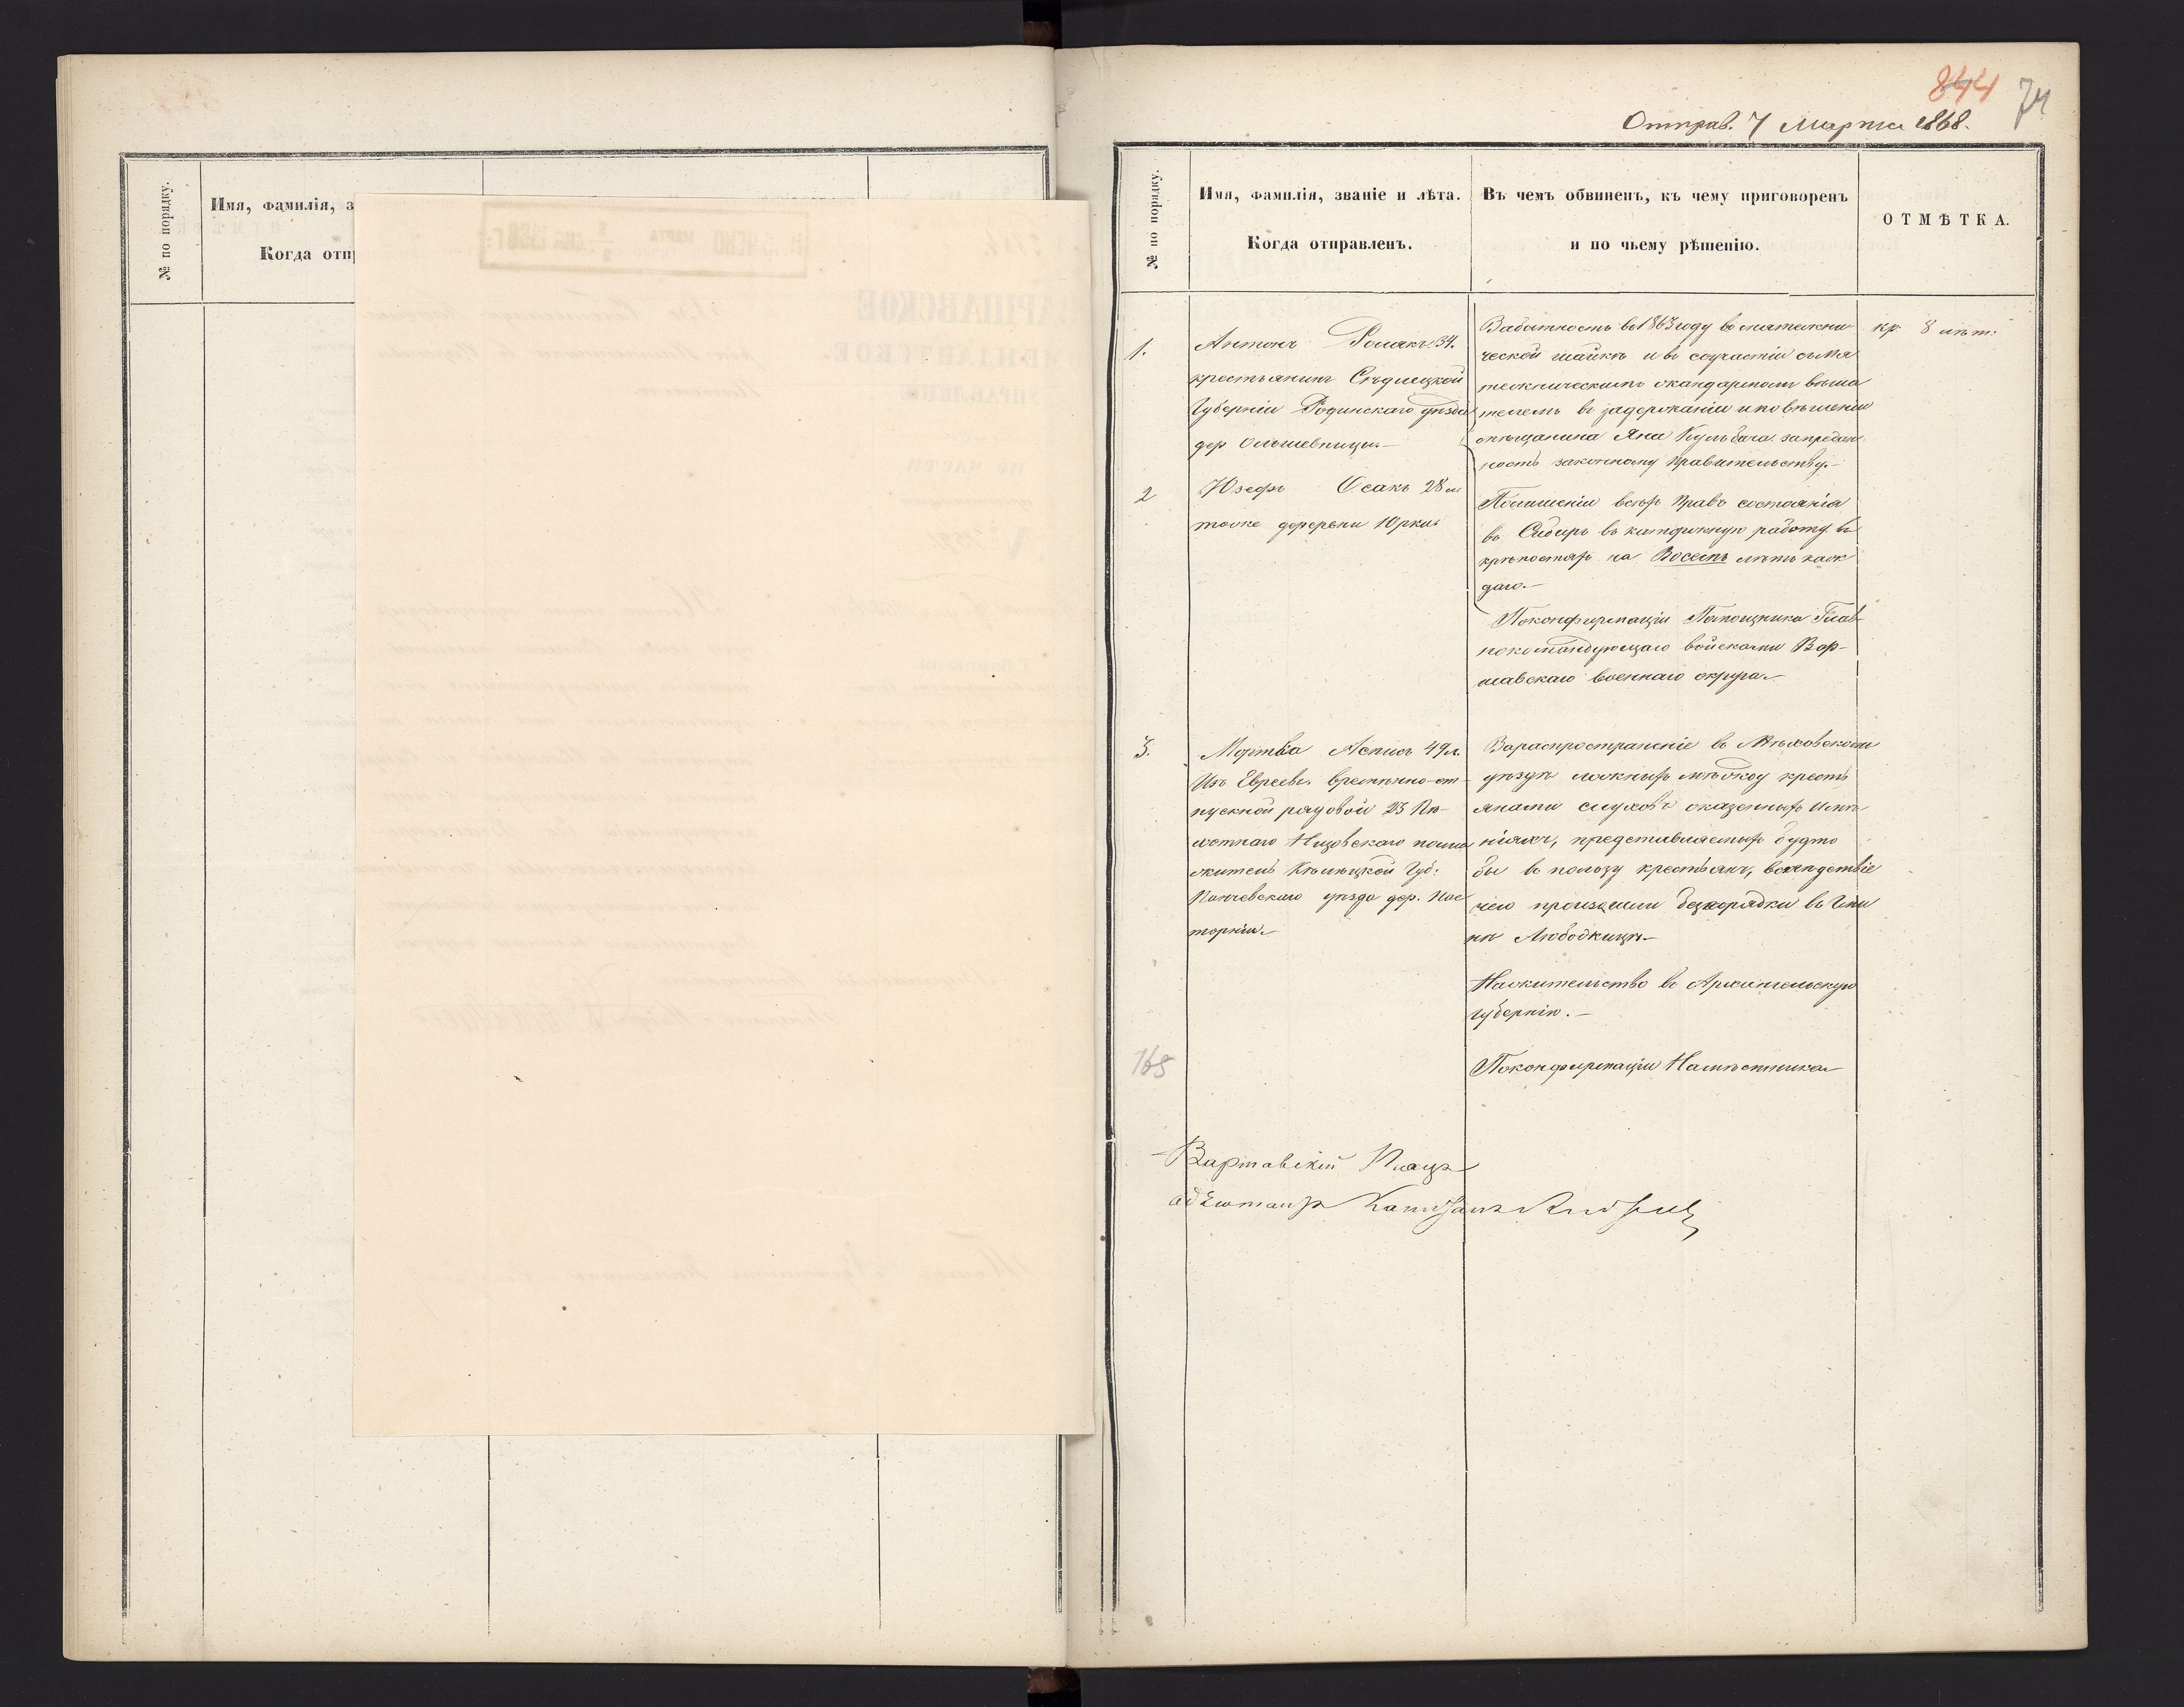 844 74
Отправ. 7 Марта 1868.
№ по порядку.
Имя, фамилія, з
Когда отп
№ по порядку.
Имя, фамилія, званіе и лѣта.
Когда отправленъ.
Въ чемъ обвиненъ, къ чему приговоренъ
и по чьему рѣшенію.
ОТМѢТКА.
1.
Антонъ 34.
крестьянинъ Сѣдлецкой
Губерніи Родинскаго уѣзда
дер Ольшевницы
Забытность въ 1863 году въ мятежни
ческой шайкѣ и въ соучастіи съ мя
тежническимъ жандармомъ вѣша
телемъ въ задержаніи и повѣшеніи
мѣщанина Яна Кульбача за предан
ность законному Правительству.
кр. 8 лѣт.
2
Юзефъ Осакъ 28 л
тоже деревни Юрки
Полишеніи всѣхъ Правъ состоянія
въ Сибирь въ каторжную работу въ
крѣпостяхъ на Восемь лѣтъ каж
даго.
Поконфирмаціи Помощника Глав
нокомандующаго войсками Вар-
шавскаго военнаго округа.
3.
Мортка 49 л.
Изъ Евреевъ. временно-от
пускной рядовой 23 Пѣ-
хотнаго Низовскаго полка
житель Кѣлецкой Губ:
Пинчевскаго уѣзда дер. Пас
торніи.
Зараспространеніе въ Мѣховскомъ
уѣздѣ ложныхъ между кресть
янами слуховъ оказенныхъ Имѣ
ніяхъ, представляемыхъ будто
бы въ пользу крестьянъ, вслѣдствіе
чего произошли безпорядки въ Гми
нѣ
Нажительство въ Архангельскую
Губернію.
Поконфирмаціи Намѣстника
168
Варшавскій Плацъ
адъютантъ Капитанъ